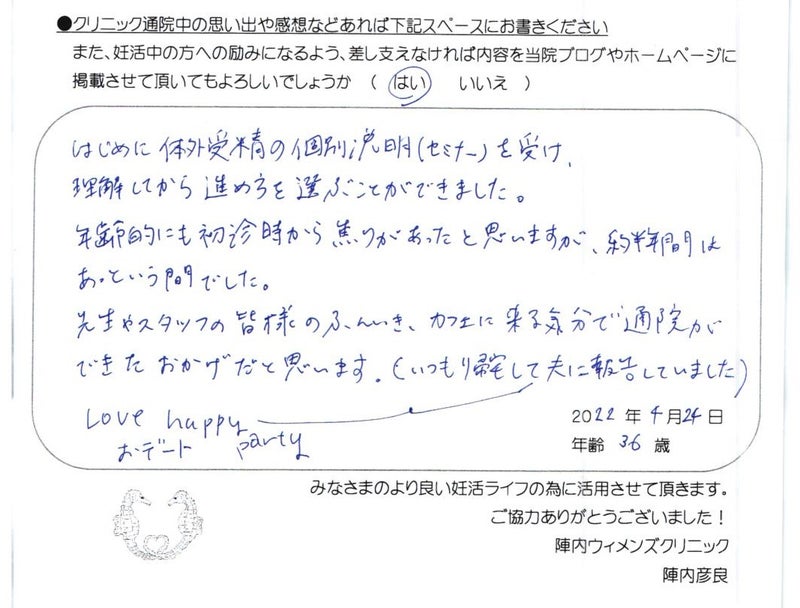 ●クリニック通院中の思い出や感想などあれば下記スペースにお書きください
また、妊活中の方への励みになるよう、差し支えなければ内容を当院ブログやホームページに
掲載させて頂いてもよろしいでしょうか （ はい いいえ ）
はじめに体外受精の個別説明(セミナー)を受け、
理解してから進め方を選ぶことができました。
年齢的にも初診時から焦りがあったと思いますが、約半年間は
あっという間でした。
先生やスタッフの皆様のふんいき、カフェに来る気分で通院が
できたおかげだと思います。(いつもり帰宅して夫に報告していました)
Love happy
おデート party
2022 年 4 月 24 日
年齢 36 歳
みなさまのより良い妊活ライフの為に活用させて頂きます。
ご協力ありがとうございました！
陣内ウィメンズクリニック
陣内彦良